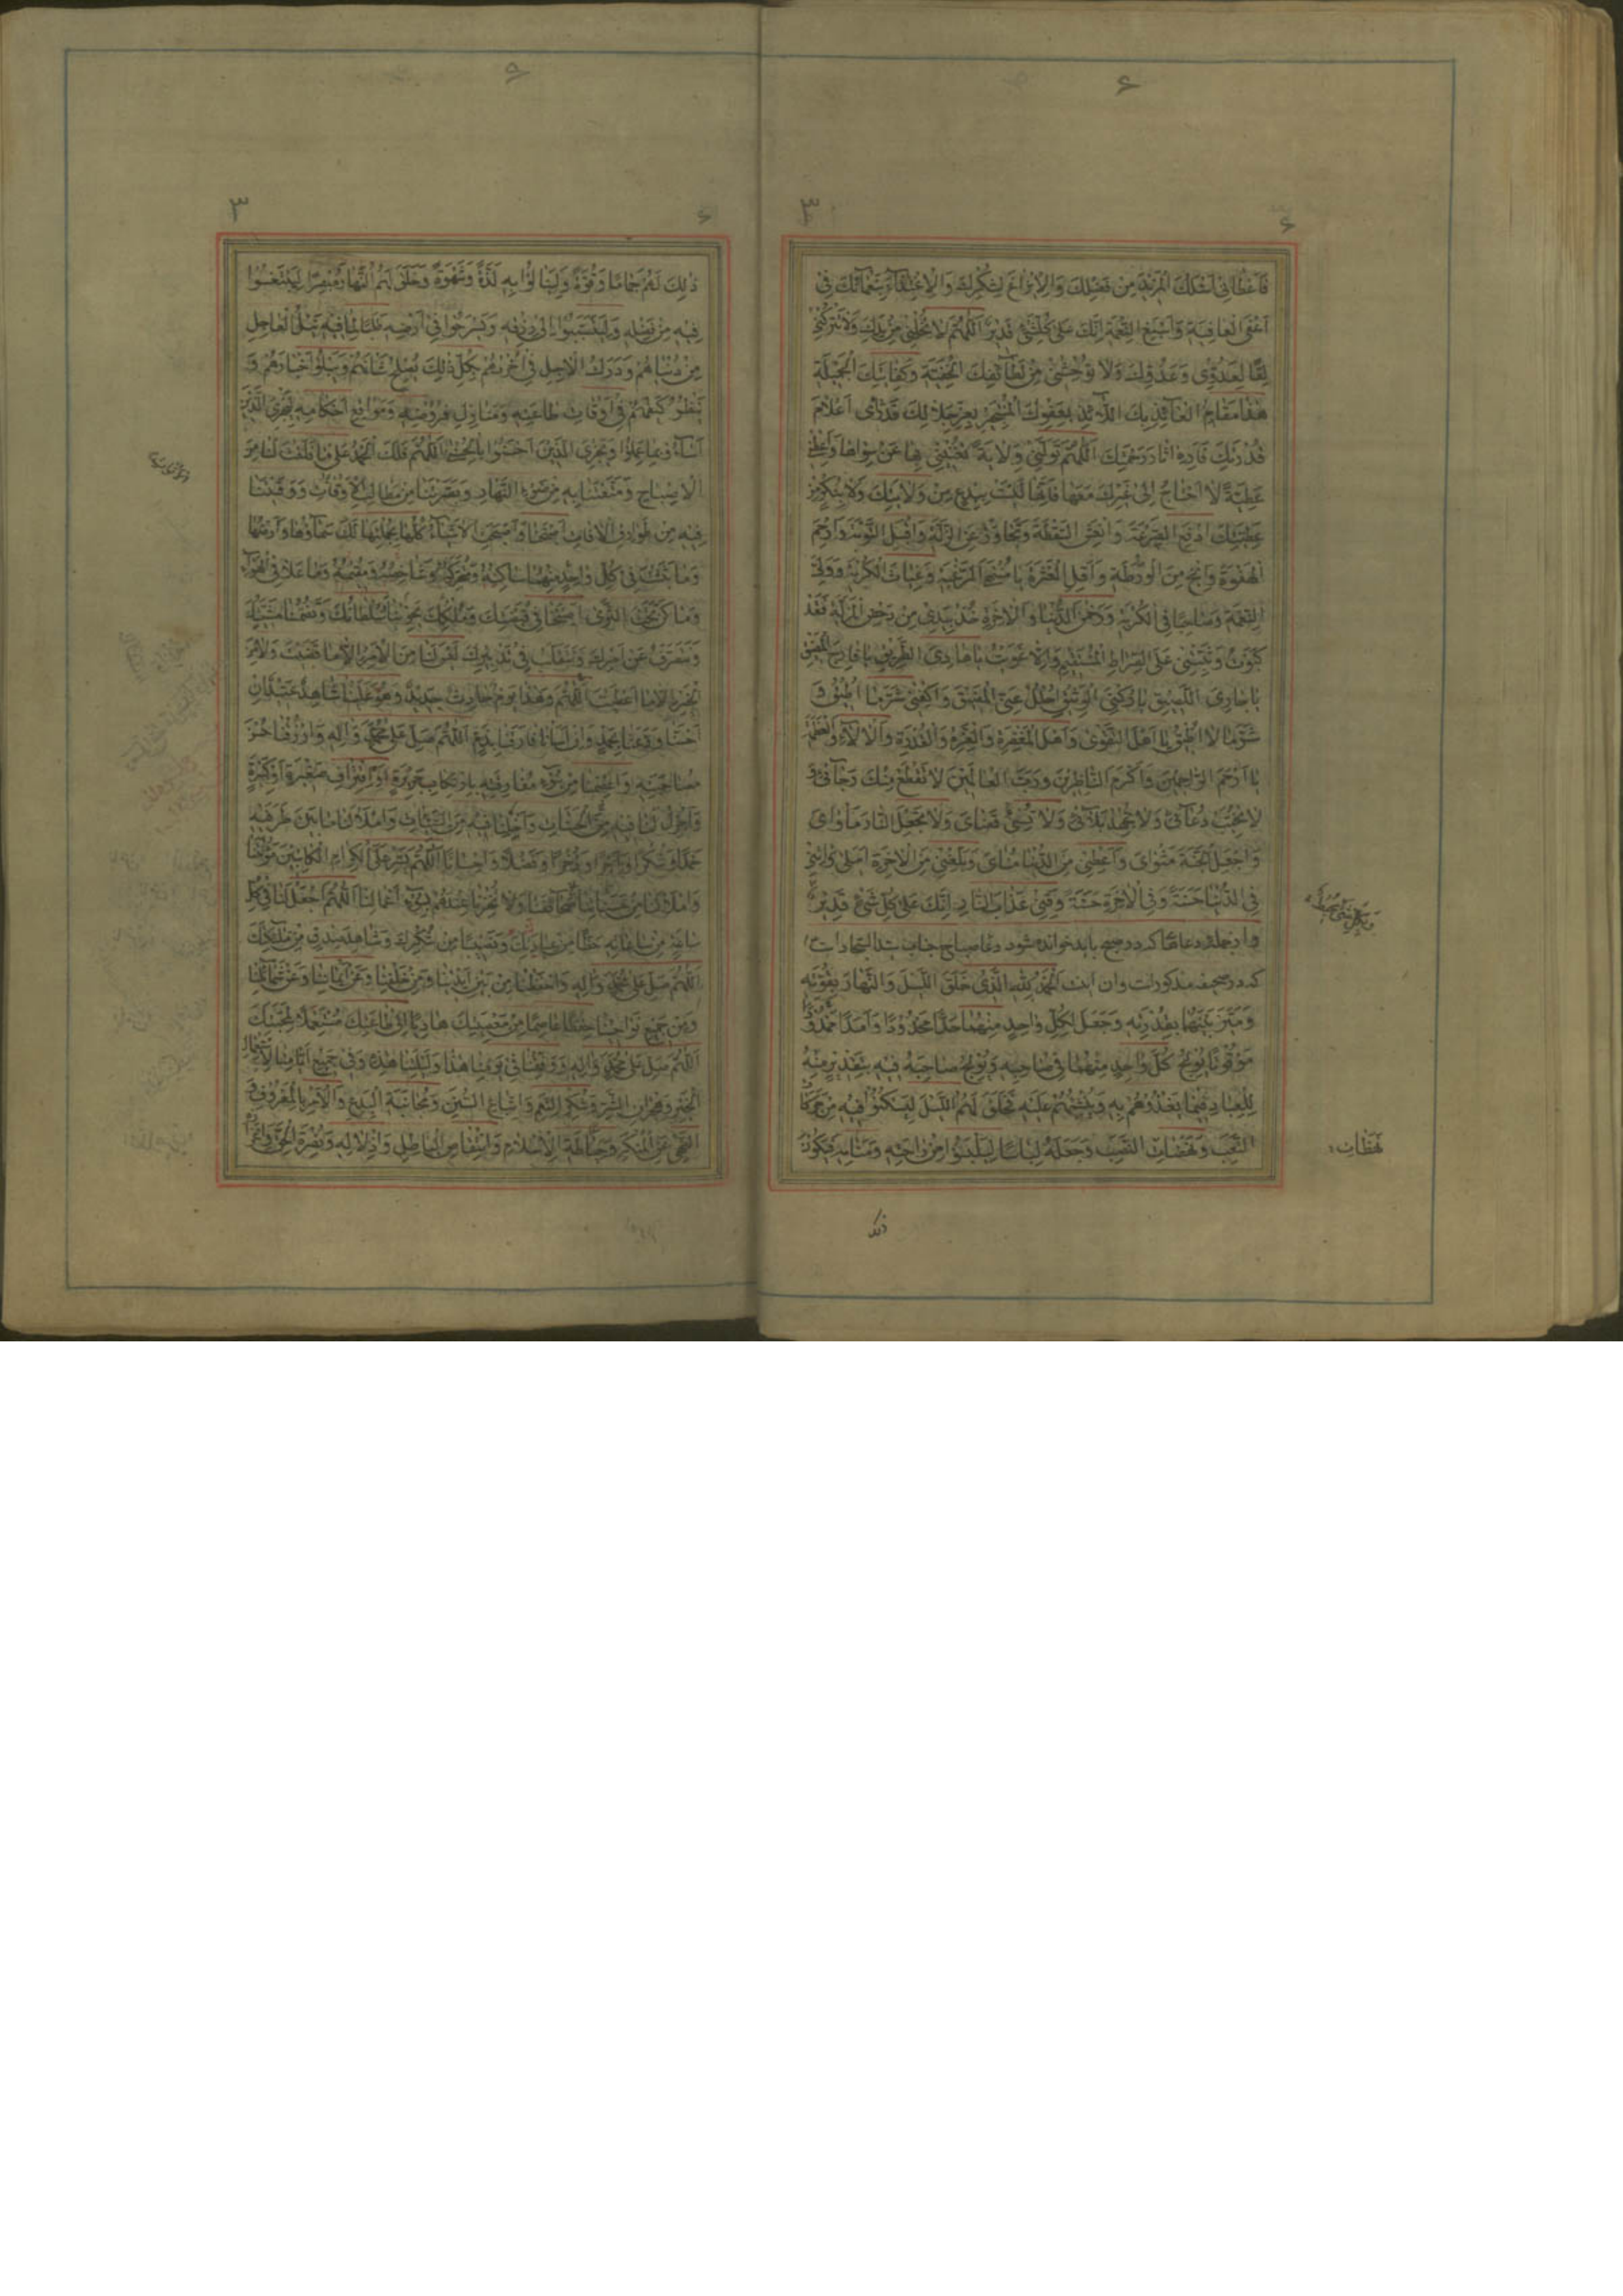 فَاَعْطَانِی اَسْئَلُكَ الْمَزِیدَ مِنْ فَضْلِكَ وَالْاِیزَاعَ لِشُكْرِكَ وَالْاِعْتِرَافَ بِنَعْمَائِكَ فِی
اَعْفَی الْعَافِیَةِ وَاَسْبَغِ النِّعْمَةِ اِنَّكَ عَلٰی كُلِّ شَیْءٍ قَدِیرٌ اَللّٰهُمَّ لَا تُخْلِنِی مِنْ یَدِكَ وَلَا تَتْرُكْنِی
لِقًا لِعَدُوِّی وَعَدُوِّكَ وَلَا تُوحِشْنِی مِنْ لَطَائِفِكَ الْخَفِیَّةِ وَكِفَایَتِكَ الْجَمِیلَةِ
هٰذَا مَقَامُ الْعَائِذِ بِكَ اللَّائِذِ بِعَفْوِكَ الْمُسْتَجِیرِ بِعِزِّ جَلَالِكَ قَدْ رَاٰی اَعْلَامَ
قُدْرَتِكَ فَاَرِهِ اٰثَارَ رَحْمَتِكَ اَللّٰهُمَّ تَوَلَّنِی وِلَایَةً تُغْنِینِی بِهَا عَنْ سِوَاهَا وَاَعْطِنِی
عَطِیَّةً لَا اَحْتَاجُ اِلٰی غَیْرِكَ مَعَهَا فَاِنَّهَا لَیْسَتْ بِبِدْعٍ مِنْ وَلَایَتِكَ وَلَا بِنُكْرٍ مِنْ
عَطِیَّتِكَ اِدْفَعِ الصَّرْعَةَ وَانْعَشِ السَّقْطَةَ وَتَجَاوَزْ عَنِ الزَّلَّةِ وَاقْبَلِ التَّوْبَةَ وَارْحَمِ
الْهَفْوَةَ وَانْجِ مِنَ الْوَرْطَةِ وَاَقِلِ الْعَثْرَةَ یَا مُنْتَهَی الرَّغْبَةِ وَغِیَاثَ الْكُرْبَةِ وَوَلِیَّ
النِّعْمَةِ وَصَاحِبًا فِی الْكُرْبَةِ وَرَحْمٰنَ الدُّنْیَا وَالْاٰخِرَةِ خُذْ بِیَدِی مِنْ دَحْضِ الْمَزَلَّةِ فَقَدْ
كَبَوْتُ وَثَبِّتْنِی عَلَی الصِّرَاطِ الْمُسْتَقِیمِ وَاِلَّا غَوَیْتُ یَا هَادِیَ الطَّرِیقِ یَا فَارِجَ الْمَضِیقِ
یَا جَارِیَ اللَّصِیقَ یَا رُكْنِیَ الْوَثِیقَ اُحْلُلْ عَنِّی الْمَضِیقَ وَاكْفِنِی شَرَّ مَا اُطِیقُ وَ
شَرَّ مَا لَا اُطِیقُ یَا اَهْلَ التَّقْوٰی وَاَهْلَ الْمَغْفِرَةِ وَالْعِزَّةِ وَالْقُدْرَةِ وَالْاٰلَاءِ وَالْعَظَمَةِ
یَا اَرْحَمَ الرَّاحِمِینَ وَاَكْرَمَ النَّاظِرِینَ وَرَبَّ الْعَالَمِینَ لَا تَقْطَعْ مِنْكَ رَجَائِی وَ
لَا تُخَیِّبْ دُعَائِی وَلَا تُجْهِدْ بَلَائِی وَلَا تُسِئْ قَضَایَ وَلَا تَجْعَلِ النَّارَ مَاْوَایَ
وَاجْعَلِ الْجَنَّةَ مَثْوَایَ وَاَعْطِنِی مِنَ الدُّنْیَا مُنَایَ وَبَلِّغْنِی مِنَ الْاٰخِرَةِ اَمَلِی وَاٰتِنِی
فِی الدُّنْیَا حَسَنَةً وَفِی الْاٰخِرَةِ حَسَنَةً وَقِنِی عَذَابَ النَّارِ اِنَّكَ عَلٰی كُلِّ شَیْءٍ قَدِیرٌ
واز جمله دعاها كه در صبح باید خوانده شود دعا صباح جناب سید السجاد است
كه در صحیفه مذكور است وان اینست اَلْحَمْدُ لِلّٰهِ الَّذِی خَلَقَ اللَّیْلَ وَالنَّهَارَ بِقُوَّتِهِ
وَمَیَّزَ بَیْنَهُمَا بِقُدْرَتِهِ وَجَعَلَ لِكُلِّ وَاحِدٍ مِنْهُمَا حَدًّا مَحْدُودًا وَاَمَدًا مَمْدُودًا
مَوْقُوتًا یُولِجُ كُلَّ وَاحِدٍ مِنْهُمَا فِی صَاحِبِهِ وَیُولِجُ صَاحِبَهُ فِیهِ بِتَقْدِیرٍ مِنْهُ
لِلْعِبَادِ فِیمَا یَغْذُوهُمْ بِهِ وَیُنْشِئُهُمْ عَلَیْهِ فَخَلَقَ لَهُمُ اللَّیْلَ لِیَسْكُنُوا فِیهِ مِنْ حَرَكَاتِ
التَّعَبِ وَنَهَضَاتِ النَّصَبِ وَجَعَلَهُ لِبَاسًا لِیَلْبَسُوا مِنْ رَاحَتِهِ وَمَنَامِهِ فَیَكُونَ
بَهَظَاتِ
ذلك
ذٰلِكَ لَهُمْ جَمَامًا وَقُوَّةً وَلِیَنَالُوا بِهِ لَذَّةً وَشَهْوَةً وَخَلَقَ لَهُمُ النَّهَارَ مُبْصِرًا لِیَبْتَغُوا
فِیهِ مِنْ فَضْلِهِ وَلِیَتَسَبَّبُوا اِلٰی رِزْقِهِ وَیَسْرَحُوا فِی اَرْضِهِ طَلَبًا لِمَا فِیهِ نَیْلُ الْعَاجِلِ
مِنْ دُنْیَاهُمْ وَدَرَكُ الْاٰجِلِ فِی اُخْرٰیهُمْ بِكُلِّ ذٰلِكَ یُصْلِحُ شَاْنَهُمْ وَیَبْلُو اَخْبَارَهُمْ وَ
یَنْظُرُ كَیْفَ هُمْ فِی اَوْقَاتِ طَاعَتِهِ وَمَنَازِلِ فُرُوضِهِ وَمَوَاقِعِ اَحْكَامِهِ لِیَجْزِیَ الَّذِینَ
اَسَاؤُا بِمَا عَمِلُوا وَیَجْزِیَ الَّذِینَ اَحْسَنُوا بِالْحُسْنٰی اَللّٰهُمَّ فَلَكَ الْحَمْدُ عَلٰی مَا فَلَقْتَ لَنَا مِنَ
الْاِصْبَاحِ وَمَتَّعْتَنَا بِهِ مِنْ ضَوْءِ النَّهَارِ وَبَصَّرْتَنَا مِنْ مَطَالِبِ الْاَوْقَاتِ وَوَقَیْتَنَا
فِیهِ مِنْ طَوَارِقِ الْاٰفَاتِ اَصْبَحْنَا وَاَصْبَحَتِ الْاَشْیَاءُ كُلُّهَا بِجُمْلَتِهَا لَكَ سَمَاؤُهَا وَاَرْضُهَا
وَمَا بَثَثْتَ فِی كُلِّ وَاحِدٍ مِنْهُمَا سَاكِنُهُ وَمُتَحَرِّكُهُ وَشَاخِصُهُ وَمُقِیمُهُ وَمَا عَلَا فِی الْهَوَاءِ
وَمَا كَنَّ تَحْتَ الثَّرٰی اَصْبَحْنَا فِی قَبْضَتِكَ وَمُلْكِكَ یَحْوِینَا سُلْطَانُكَ وَتَضُمُّنَا مَشِیَّتُكَ
وَنَتَصَرَّفُ عَنْ اَمْرِكَ وَنَتَقَلَّبُ فِی تَدْبِیرِكَ لَیْسَ لَنَا مِنَ الْاَمْرِ اِلَّا مَا قَضَیْتَ وَلَا مِنَ
الْخَیْرِ اِلَّا مَا اَعْطَیْتَ اَللّٰهُمَّ وَهٰذَا یَوْمٌ حَادِثٌ جَدِیدٌ وَهُوَ عَلَیْنَا شَاهِدٌ عَتِیدٌ اِنْ
اَحْسَنَّا وَدَّعَنَا بِحَمْدٍ وَاِنْ اَسَاْنَا فَارَقَنَا بِذَمٍّ اَللّٰهُمَّ صَلِّ عَلٰی مُحَمَّدٍ وَاٰلِهِ وَارْزُقْنَا حُسْنَ
مُصَاحَبَتِهِ وَاعْصِمْنَا مِنْ سُوءِ مُفَارَقَتِهِ بِارْتِكَابِ جَرِیرَةٍ اَوِ اقْتِرَافِ صَغِیرَةٍ اَوْ كَبِیرَةٍ
وَاَجْزِلْ لَنَا فِیهِ مِنَ الْحَسَنَاتِ وَاَخْلِنَا فِیهِ مِنَ السَّیِّئَاتِ وَامْلَاْ لَنَا مَا بَیْنَ طَرَفَیْهِ
حَمْدًا وَشُكْرًا وَاَجْرًا وَذُخْرًا وَفَضْلًا وَاِحْسَانًا اَللّٰهُمَّ یَسِّرْ عَلَی الْكِرَامِ الْكَاتِبِینَ مَؤُنَتَنَا
وَامْلَاْ لَنَا مِنْ حَسَنَاتِنَا صَحَائِفَنَا وَلَا تُخْزِنَا عِنْدَهُمْ بِسُوءِ اَعْمَالِنَا اَللّٰهُمَّ اجْعَلْ لَنَا فِی كُلِّ
سَاعَةٍ مِنْ سَاعَاتِهِ حَظًّا مِنْ عِبَادِكَ وَنَصِیبًا مِنْ شُكْرِكَ وَشَاهِدَ صِدْقٍ مِنْ مَلَائِكَتِكَ
اَللّٰهُمَّ صَلِّ عَلٰی مُحَمَّدٍ وَاٰلِهِ وَاحْفَظْنَا مِنْ بَیْنِ اَیْدِینَا وَمِنْ خَلْفِنَا وَعَنْ اَیْمَانِنَا وَعَنْ شَمَائِلِنَا
وَمِنْ جَمِیعِ نَوَاحِینَا حِفْظًا عَاصِمًا مِنْ مَعْصِیَتِكَ هَادِیًا اِلٰی طَاعَتِكَ مُسْتَعْمِلًا لِمَحَبَّتِكَ
اَللّٰهُمَّ صَلِّ عَلٰی مُحَمَّدٍ وَاٰلِهِ وَوَفِّقْنَا فِی یَوْمِنَا هٰذَا وَلَیْلَتِنَا هٰذِهِ وَفِی جَمِیعِ اَیَّامِنَا لِاسْتِعْمَالِ
الْخَیْرِ وَهِجْرَانِ الشَّرِّ وَشُكْرِ النِّعَمِ وَاتِّبَاعِ السُّنَنِ وَمُجَانَبَةِ الْبِدَعِ وَالْاَمْرِ بِالْمَعْرُوفِ وَ
النَّهْیِ عَنِ الْمُنْكَرِ وَحِیَاطَةِ الْاِسْلَامِ وَانْتِقَاصِ الْبَاطِلِ وَاِذْلَالِهِ وَنُصْرَةِ الْحَقِّ وَاِعْزَازِهِ